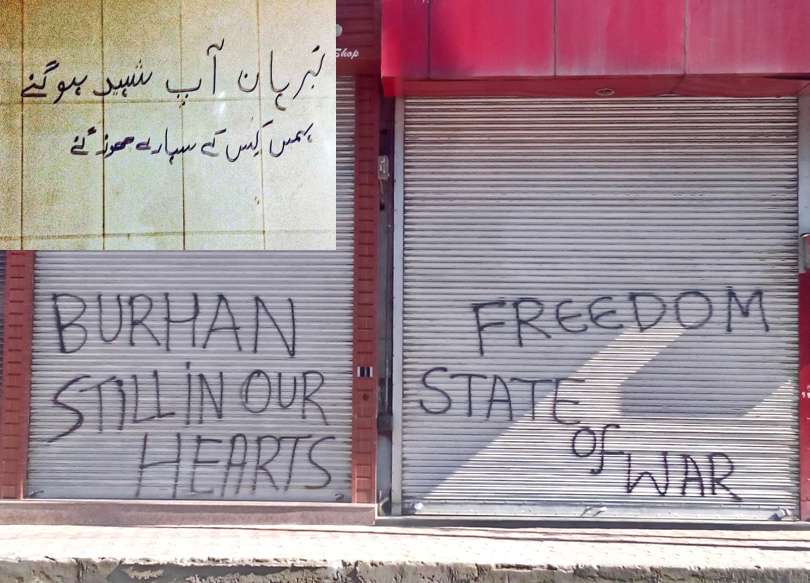 برہان آپ شہید ہوگئے
ہمیں کس کے سہارے چھوڑ گئے
Shop
BURHAN
STILL IN OUR
HEARTS
FREEDOM
STATE
OF
WAR